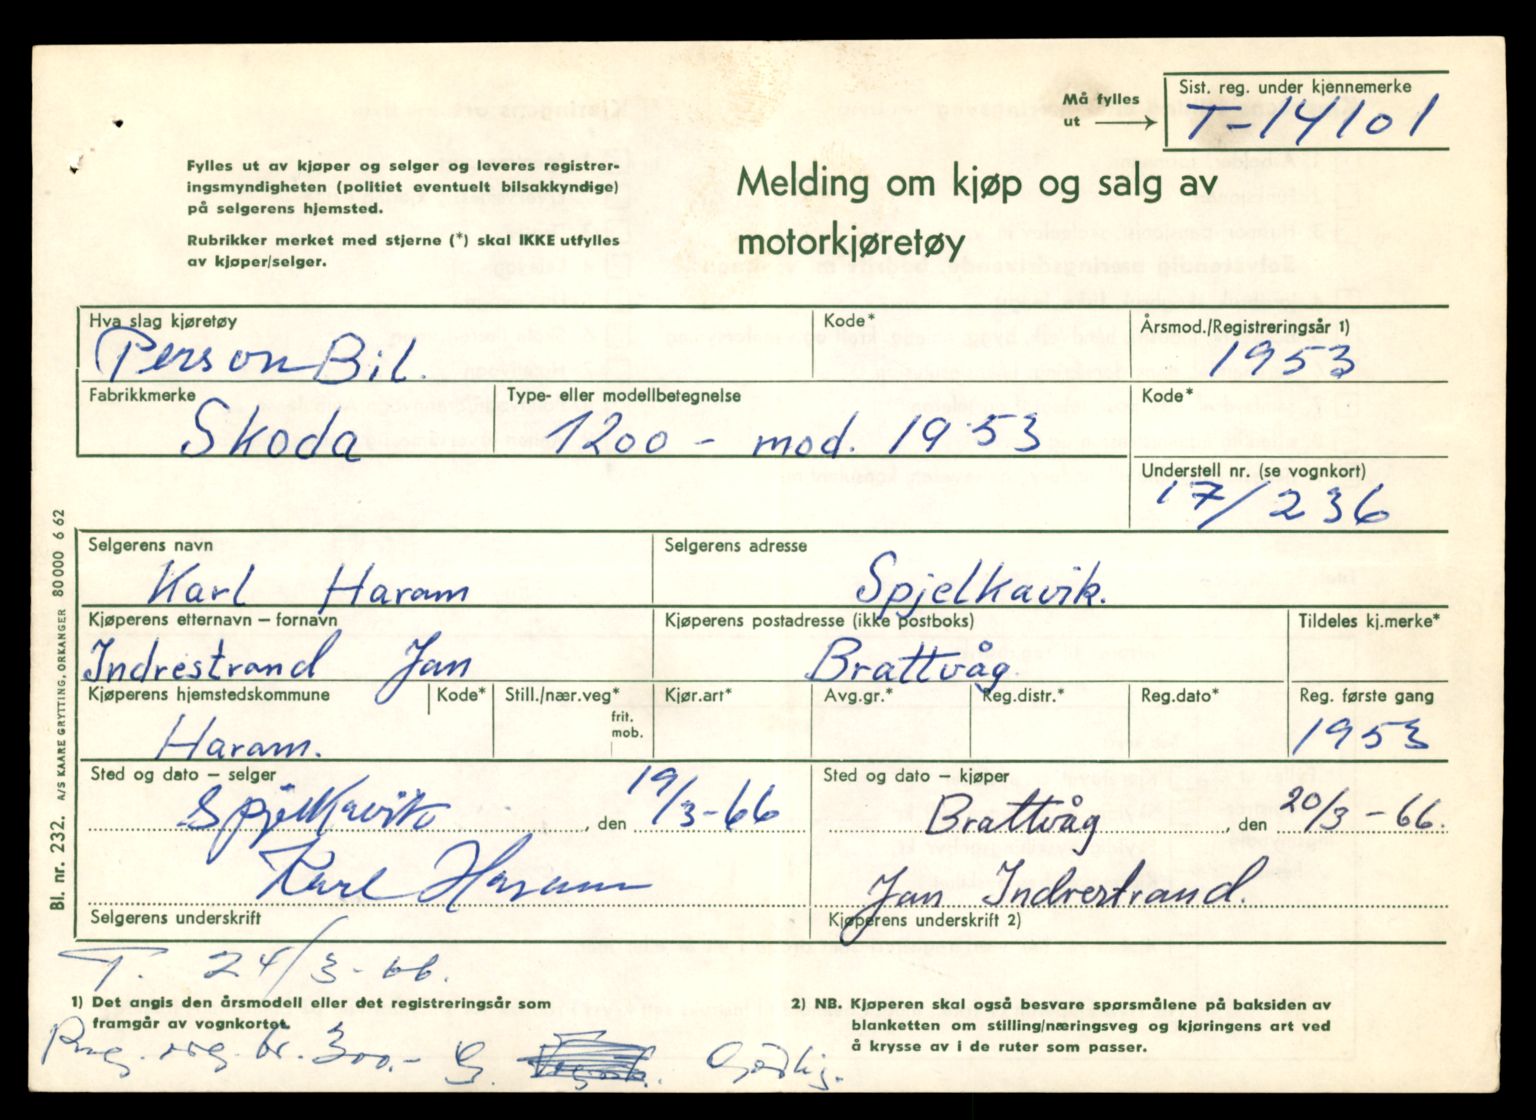 Sist. reg. under kjennemerke
Må fylles
ut
T-14101
Fylles ut av kjøper og selger og leveres registrer-
ingsmyndigheten (politiet eventuelt bilsakkyndige)
på selgerens hjemsted.
Rubrikker merket med stjerne (*) skal IKKE utfylles
av kjøper/selger.
Melding om kjøp og salg av
motorkjøretøy
Hva slag kjøretøy Kode* Årsmod./Registreringsår 1)
Person Bil. 1953
Fabrikkmerke Type- eller modellbetegnelse Kode*
Skoda 1200 - mod. 1953
Understell nr. (se vognkort)
17/236
Selgerens navn Selgerens adresse
Karl Haram Spjelkavik.
Kjøperens etternavn – fornavn Kjøperens postadresse (ikke postboks) Tildeles kj.merke*
Indrestrand Jan Brattvåg
Kjøperens hjemstedskommune Kode* Still./nær.veg* Kjør.art* Avg.gr.* Reg.distr.* Reg.dato* Reg. første gang
frit.
mob.
Haram. 1953
Sted og dato – selger Sted og dato – kjøper
Spjelkavik, den 19/3-66 Brattvåg, den 20/3-66.
Karl Haram Jan Indrestrand.
Selgerens underskrift Kjøperens underskrift 2)
T. 24/3-66.
1) Det angis den årsmodell eller det registreringsår som
framgår av vognkortet.
2) NB. Kjøperen skal også besvare spørsmålene på baksiden av
blanketten om stilling/næringsveg og kjøringens art ved
å krysse av i de ruter som passer.
reg. kr. 300.-
Bl. nr. 232. A/S KAARE GRYTTING, ORKANGER 80 000 6 62